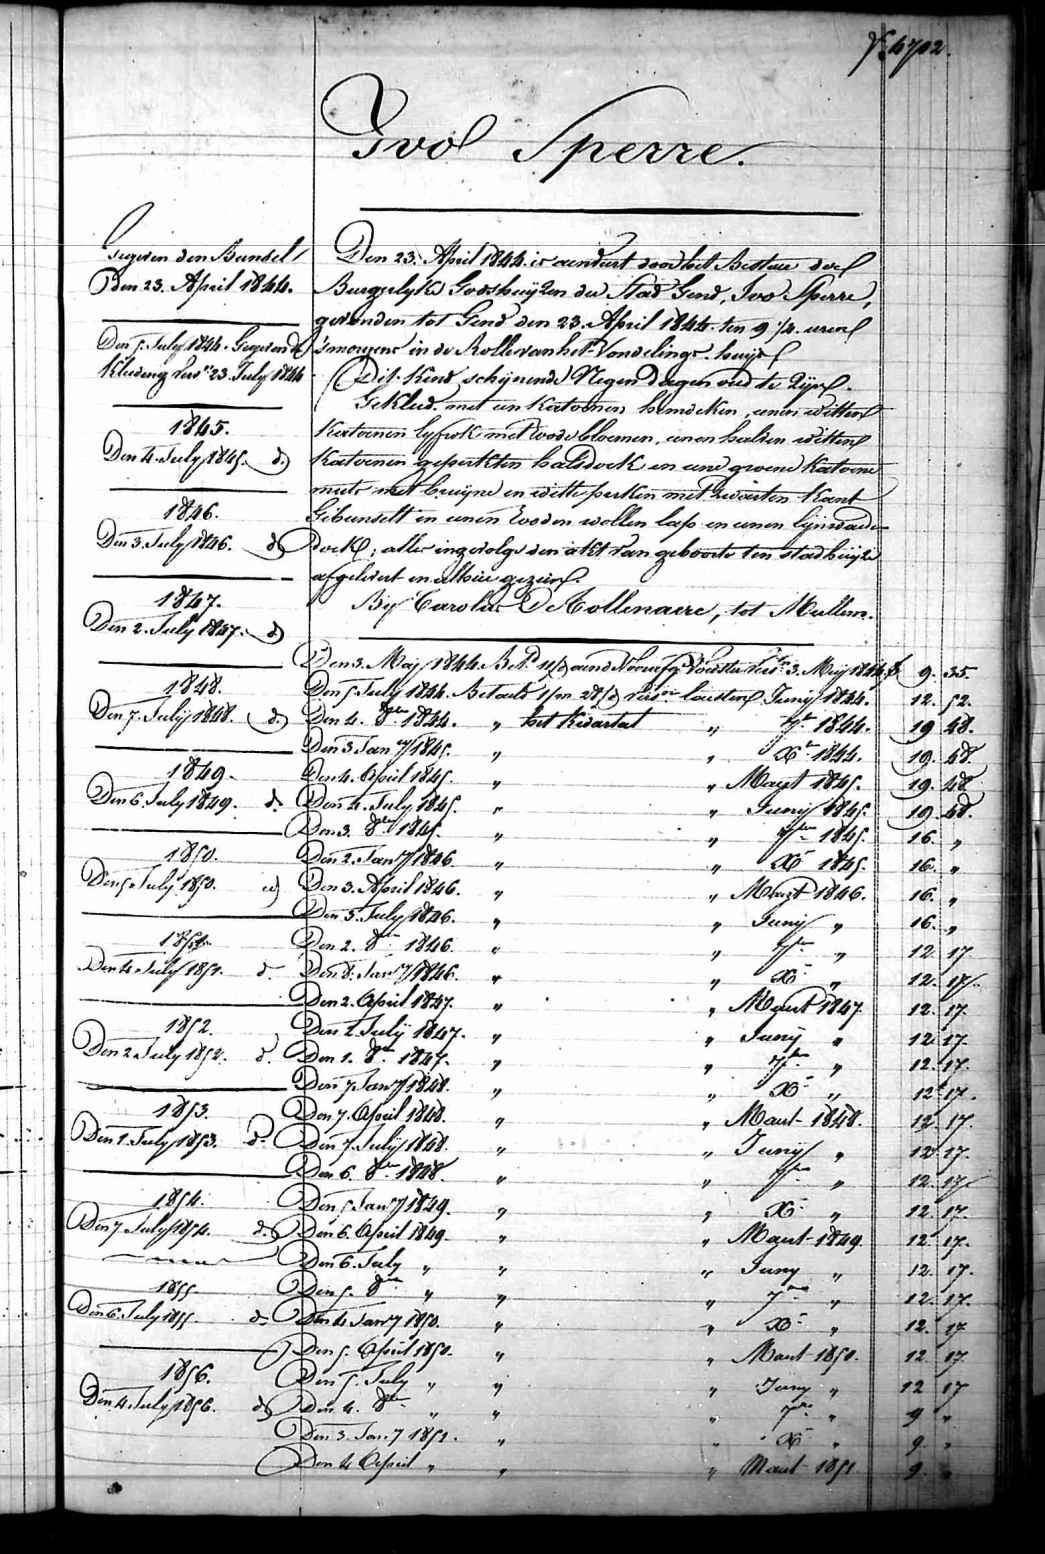 № 4702.
Ivo Sperre.
Gegeven den Bundel
Den 23. April 1844.
Den 5. July 1844. Gegeven de
kleding vers. 23 July 1844
1845.
Den 4. July 1845. d.
1846.
Den 3. July 1846. d.
1847.
Den 2. July 1847. d.
1848.
Den 7. July 1848. d.
1849.
Den 6. July 1849. d.
1850.
Den 5. July 1850. d.
1851.
Den 4. July 1851. d.
1852.
Den 2 July 1852. d.
1853.
Den 1. July 1853. d.
1854.
Den 7. July 1854. d.
1855.
Den 6. July 1855. d.
1856.
Den 4. July 1856. d.
Den 23. April 1844. is aenveert door het Bestuer der
Burgerlyke Godshuyzen der Stad Gend, Ivo Sperre,
gevonden tot Gend den 23. April 1844. ten 9 1/4. uren
'smorgens in de Rolle van het Vondelings-huys
Dit kind schynende Negen dagen oud te zyn.
Gekleed met een katoenen hemdeken, eenen witten
katoenen lyfrok met roode bloemen, eenen halven witten
katoenen geperkten halsdoek en eene groene katoene
muts met bruyne en witte perken met zwarten kant
Gebunselt in eenen rooden wollen lap en eenen lynwaden
doek; alles ingevolge den akt van geboorte ten stadhuyze
afgelevert en alhier gezien.
By Carolus De Collenaere, tot Mullem.
Den 3. Mey 1844. 3. Mey 1844 f 9. 35.
Den 5 July 1844. Betaelt laesten Juny 1844. 12. 52.
Den 4. 8ber 1844. " het kwartael " 7ber 1844. 19 48.
Den 3 Jany 1845. " " Xr 1844. 19. 48.
Den 4. April 1845. " " Maert 1845. 19. 48
Den 4. July 1845. " " Juny 1845. 19. 48.
Den 3. 8ber 1845. " " 7ber 1845. 16. "
Den 2. Jany 1846. " " Xr 1845. 16. "
Den 3. April 1846. " " Maert 1846. 16. "
Den 3. July 1846. " " Juny " 16. "
Den 2. 8ber 1846. " " 7ber " 12 17
Den 8. Jany 1846. " " Xr " 12. 17.
Den 2. April 1847. " " Maert 1847. 12. 17.
Den 2. July 1847. " " Juny " 12 17.
Den 1. 8ber 1847. " " 7ber " 12. 17.
Den 7 Jany 1848. " " Xr " 12. 17.
Den 7. April 1848. " " Maert 1848. 12. 17.
Den 7. July 1848. " " Juny " 12 17.
Den 6. 8ber 1848. " " 7ber " 12. 17.
Den 5 Jany 1849. " " Xr " 12. 17.
Den 6. April 1849. " " Maert 1849. 12. 17.
Den 6. July " " " Juny " 12. 17.
Den 5. 8ber " " " 7ber " 12. 17.
Den 4 Jany 1850. " " Xr " 12. 17
Den 5. April 1850. " " Maert 1850. 12. 17.
Den 5. July " " " Juny " 12 17
Den 4. 8ber " " " 7ber " 9 "
Den 3. Jany 1851. " " Xr " 9. "
Den 4 April " " " Maert 1851 9. "